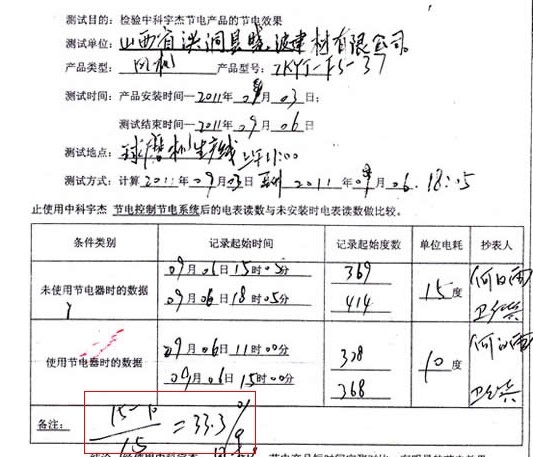 测试目的：检验中科宇杰节电产品的节电效果
测试单位：山西省洪洞县晓波建材有限公司
产品类型：风机 产品型号：ZKYJ-F5-37
测试时间：产品安装时间—2011年09月03日；
测试结束时间—2011年09月06日
测试地点：球磨机生产线 上午11:00
测试方式：计算2011年09月03日至 2011年09月06. 18:05
止使用中科宇杰 节电控制节电系统后的电表读数与未安装时电表读数做比较。
条件类别 记录起始时间 记录起始度数 单位电耗 抄表人
未使用节电器时的数据 09月06日15时05分 369 15度
09月06日18时05分 414
使用节电器时的数据 09月06日11时00分 328 10度
09月06日15时00分 368
备注： 15-10/15 = 33.3%